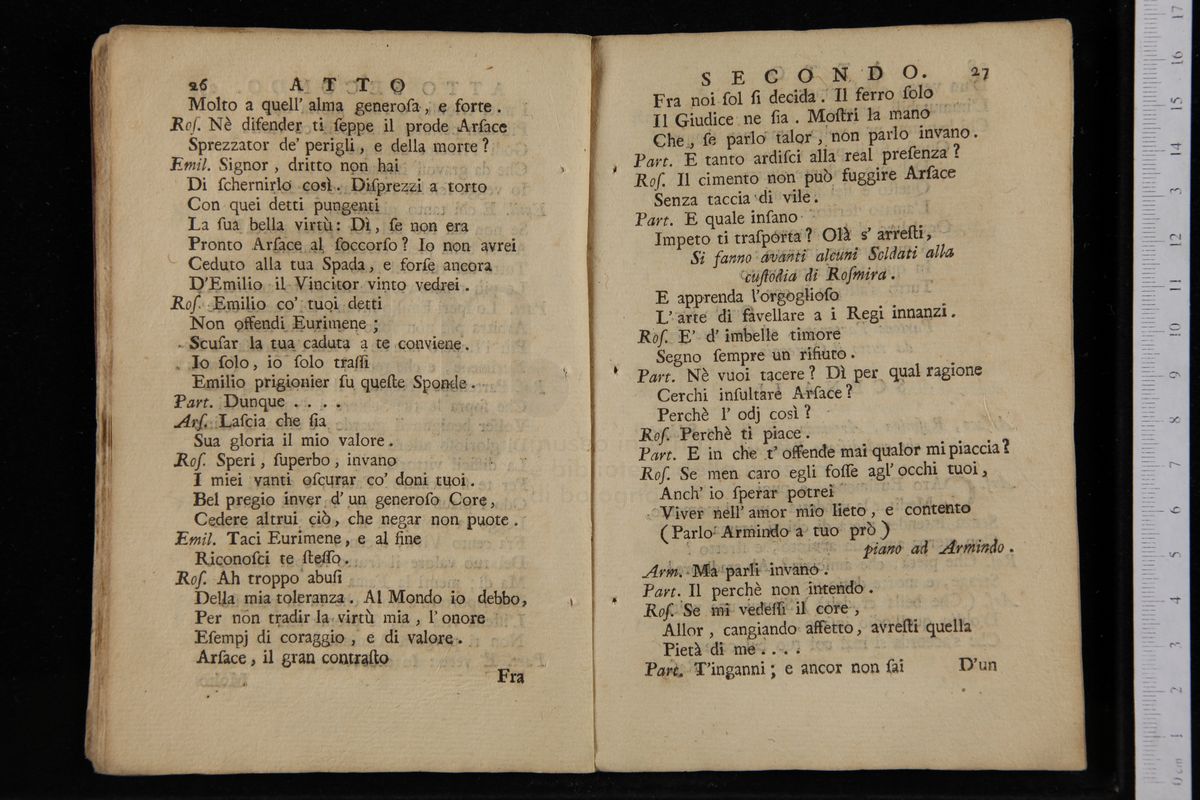 26 ATTO
Molto a quell' alma generoſa, e forte.
Roſ. Nè difender ti ſeppe il prode Arſace
Sprezzator de' perigli, e della morte?
Emil. Signor, dritto non hai
Di ſchernirlo così. Diſprezzi a torto
Con quei detti pungenti
La ſua bella virtù: Dì, ſe non era
Pronto Arſace al ſoccorſo? Io non avrei
Ceduto alla tua Spada, e forſe ancora
D'Emilio il Vincitor vinto vedrei.
Roſ. Emilio co' tuoi detti
Non offendi Eurimene;
Scuſar la tua caduta a te conviene.
Io ſolo, io ſolo traſſi
Emilio prigionier ſu queſte Sponde.
Part. Dunque ....
Arſ. Laſcia che ſia
Sua gloria il mio valore.
Roſ. Speri, ſuperbo, invano
I miei vanti oſcurar co' doni tuoi.
Bel pregio inver d' un generoſo Core,
Cedere altrui ciò, che negar non puote.
Emil. Taci Eurimene, e al fine
Riconoſci te ſteſſo.
Roſ. Ah troppo abuſi
Della mia toleranza. Al Mondo io debbo,
Per non tradir la virtù mia, l' onore
Eſempj di coraggio, e di valore.
Arſace, il gran contraſto
Fra
SECONDO. 27
Fra noi ſol ſi decida. Il ferro ſolo
Il Giudice ne ſia. Moſtri la mano
Che, ſe parlo talor, non parlo invano.
Part. E tanto ardiſci alla real preſenza?
Roſ. Il cimento non può fuggire Arſace
Senza taccia di vile.
Part. E quale inſano
Impeto ti traſporta? Olà s' arreſti,
Si fanno avanti alcuni Soldati alla
cuſtodia di Roſmira.
E apprenda l'orgoglioſo
L' arte di favellare a i Regi innanzi.
Roſ. E' d' imbelle timore
Segno ſempre un rifiuto.
Part. Nè vuoi tacere? Dì per qual ragione
Cerchi inſultare Arſace?
Perchè l' odj così?
Roſ. Perchè ti piace.
Part. E in che t' offende mai qualor mi piaccia?
Roſ. Se men caro egli foſſe agl' occhi tuoi,
Anch' io ſperar potrei
Viver nell' amor mio lieto, e contento
(Parlo Armindo a tuo prò)
piano ad Armindo.
Arm. Ma parli invano.
Part. Il perchè non intendo.
Roſ. Se mi vedeſſi il core,
Allor, cangiando affetto, avreſti quella
Pietà di me ....
Part. T'inganni; e ancor non ſai
D'un